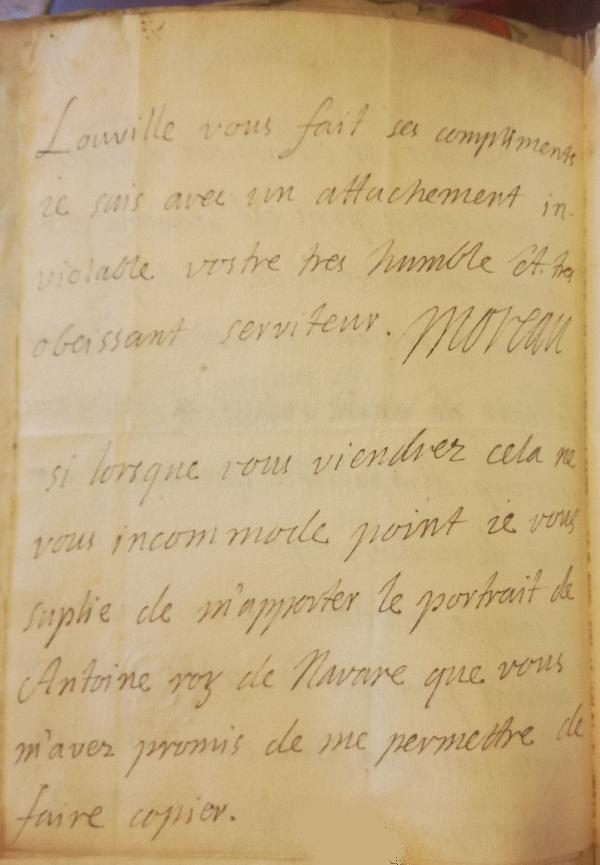 Louville vous fait ses compliments
ie suis avec un attachement in-
violable vostre tres humble et tres
obeissant serviteur. Moreau
si lorsque vous viendrez cela ne
vous incommode point ie vous
suplie de m'apporter le portrait de
Antoine roy de Navare que vous
m'avez promis de me permettre de
faire copier.